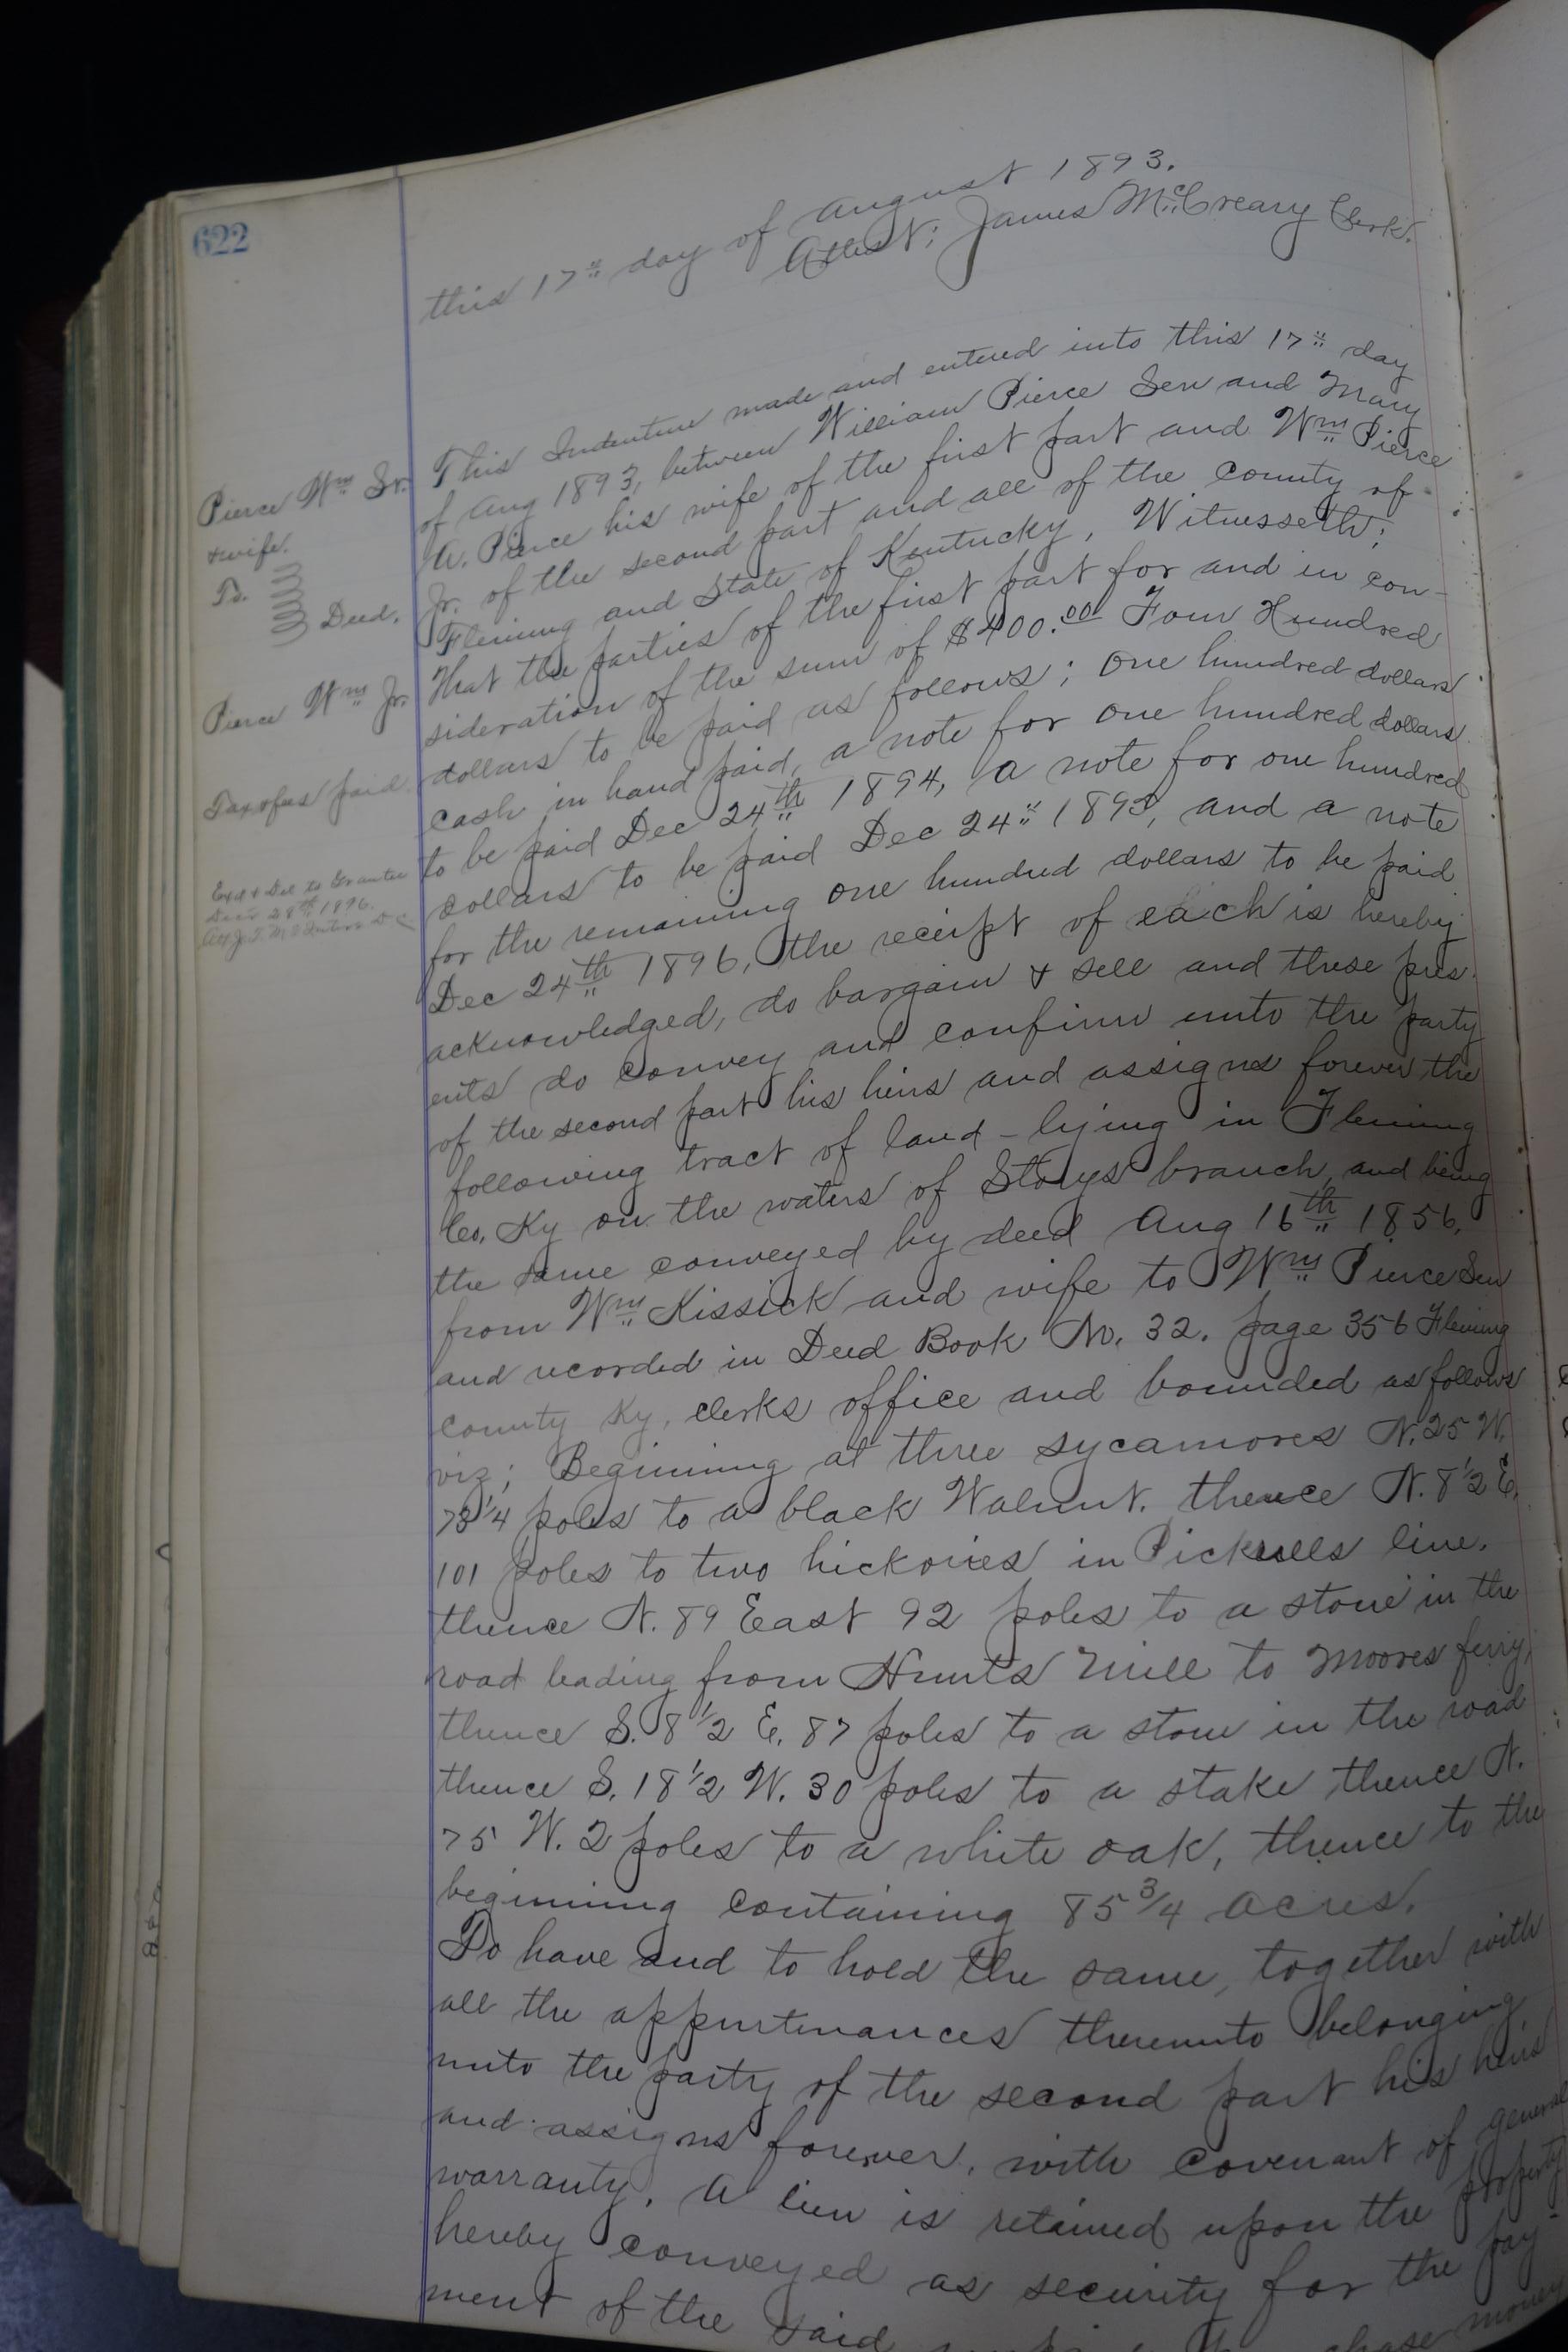 622
this 17th day of August 1893.
Attest; James McCreary Clerk.
Pierce Wm Sr.
&wife.
To. Deed.
Pierce Wm Jr.
Taxofus paid.
Exd & Del to Grantee
28th 1896.
This Indenture made and entered into this 17th day
of Aug 1893, between William Pierce Sen and Mary
A. Pierce his wife of the first part and Wm Pierce
Jr. of the second part and all of the county of
Fleming and State of Kentucky, Witnesseth;
That the parties of the first part for and in con-
sideration of the sum of $400.00 Four Hundred
dollars to be paid as follows; One hundred dollars
cash in hand paid, a note for one hundred dollars
to be paid Dec 24th 1894, a note for one hundred
dollars to be paid Dec 24th 1893, and a note
for the remaining one hundred dollars to be paid
Dec 24th 1896, the receipt of each is hereby
acknowledged, do bargain & sell and these pres-
ents do convey and confirm unto the party
of the second part his heirs and assigns forever the
following tract of land - lying in Fleming
Co. Ky on the waters of Storys branch, and being
the same conveyed by deed Aug 16th 1856,
from Wm Kissick and wife to Wm Pierce Sen
and recorded in Deed Book No. 32. page 356 Fleming
county Ky. clerks office and bounded as follows
viz; Beginning at three sycamores N. 25 W.
73 1/4 poles to a black Walnut. thence N. 8 1/2 E.
101 poles to two hickories in Pickrells line.
thence N. 89 East 92 poles to a stone in the
road leading from Hunts Mill to Moores ferry,
thence S. 8 1/2 E. 87 poles to a stone in the road
thence S. 18 1/2 W. 30 poles to a stake thence N.
75 W. 2 poles to a white oak, thence to the
beginning containing 85 3/4 acres.
To have and to hold the same, together with
all the appurtenances thereunto belonging
unto the party of the second part his heirs
and assigns forever, with covenant of general
warranty. A lien is retained upon the property
hereby conveyed as security for the pay-
ment of the said money